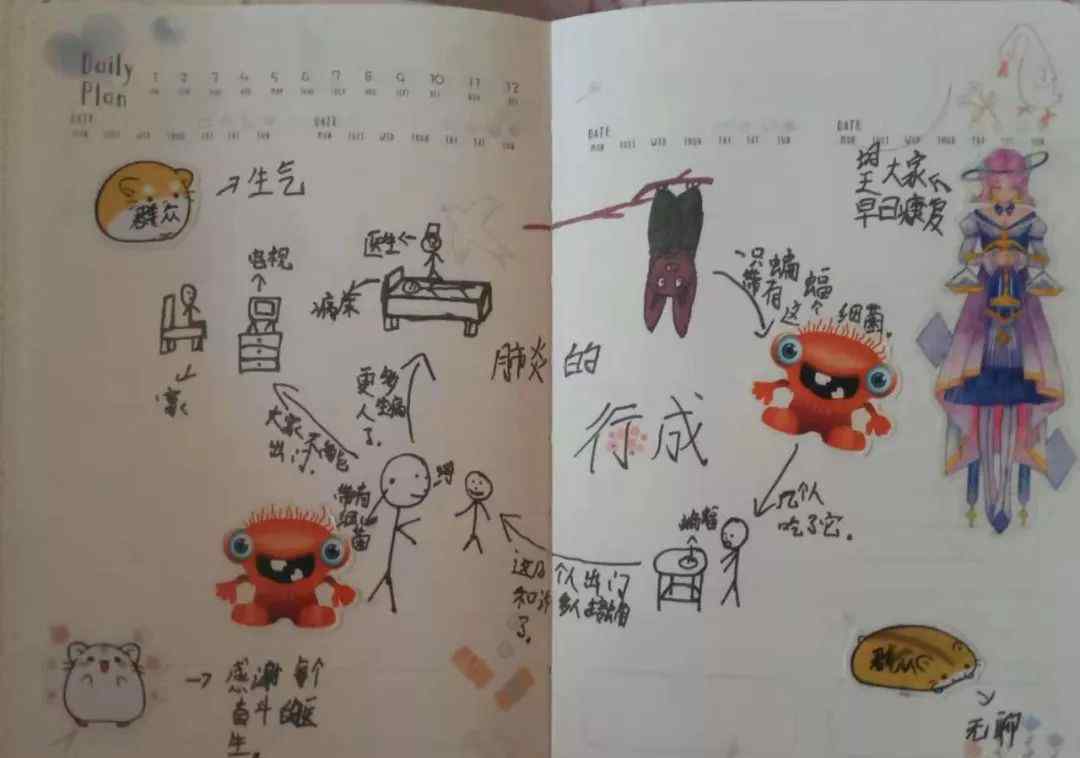 Daily
Plan
1 2 3 4 5 6 7 8 9 10 11 12
DATE
MON TUES WED THUR FRI SAT SUN
DATE
MON TUES WED THUR FRI SAT SUN
群众
生气
电视
医生
病床
家
更多
人生病
了。
大家不能
出门。
带有
细菌
感谢每个
奋斗的医
生。
肺炎的
行成
DATE
MON TUES WED THUR FRI SAT SUN
DATE
MON TUES WED THUR FRI SAT SUN
大家
早日康复
一只蝙蝠
带有这个
细菌。
几个人
吃了它。
蝙蝠
个人出门
了。
群众
无聊